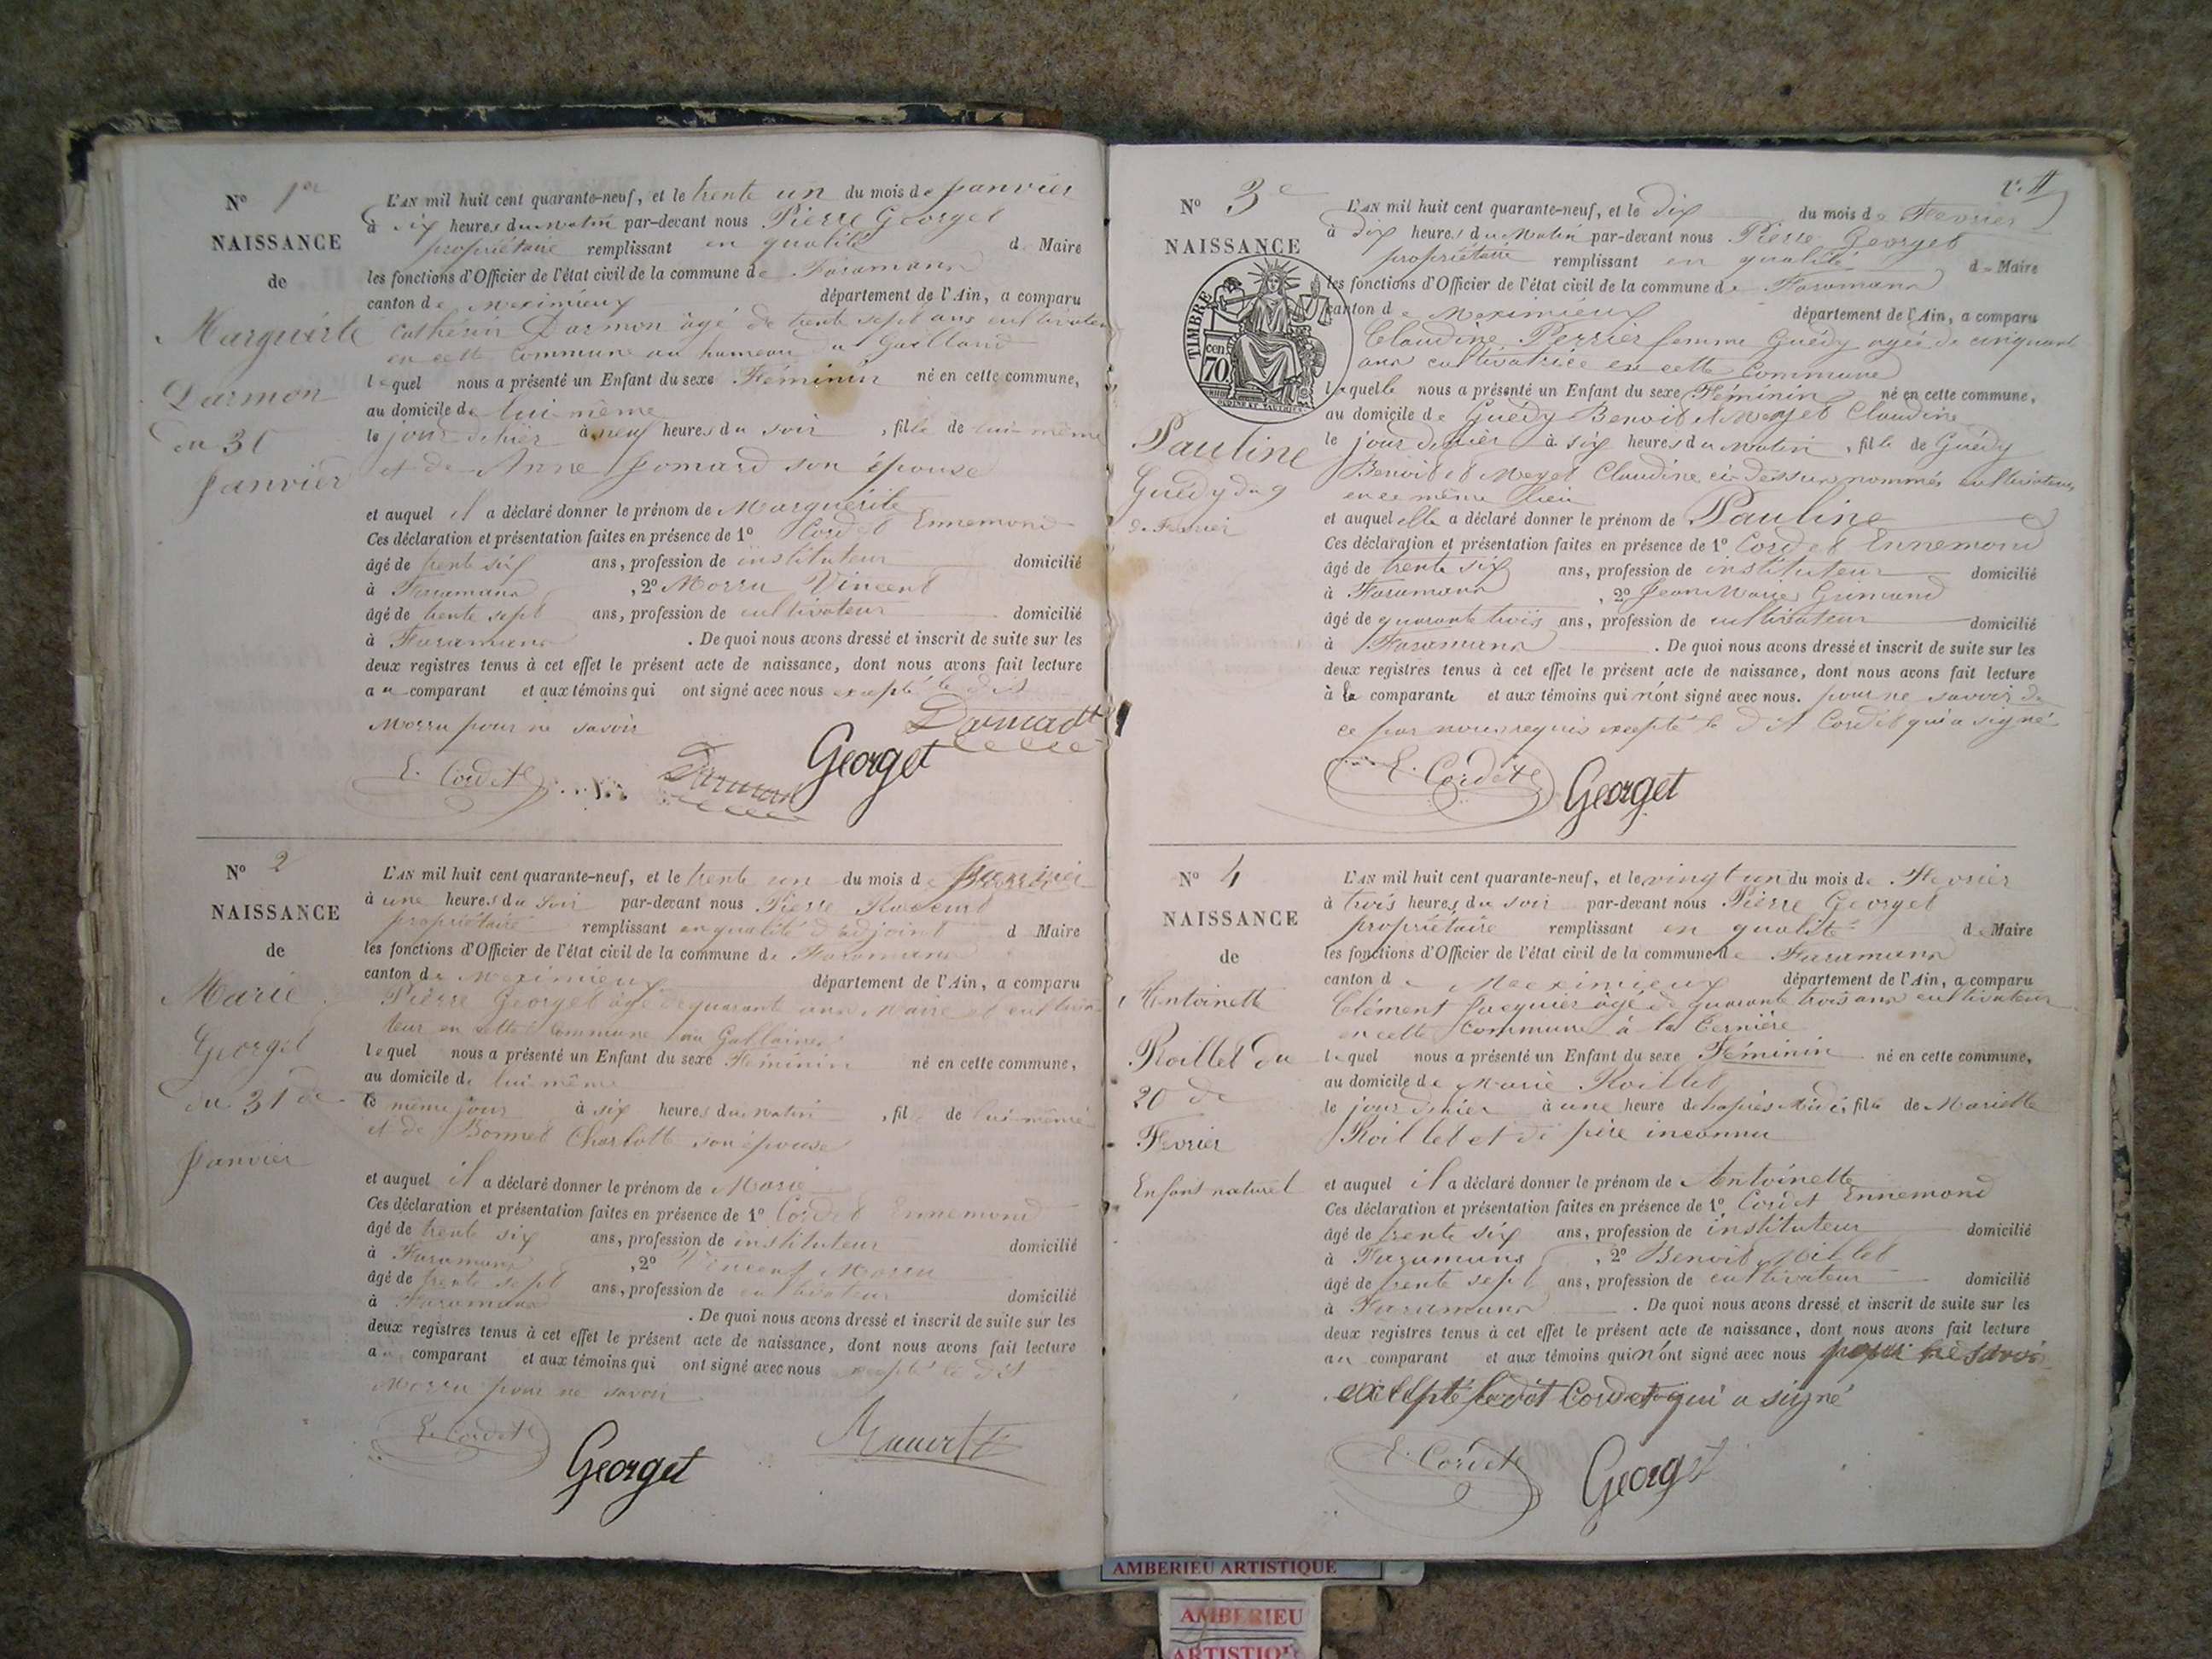 N° 1er
NAISSANCE
de
Marguerite
Darmon
du 31
Janvier
L'AN mil huit cent quarante-neuf, et le trente un du mois de Janvier
à six heures du matin par-devant nous Pierre Georget
propriétaire remplissant en qualité d Maire
les fonctions d'Officier de l'état civil de la commune de Faramans
canton de Meximieux département de l'Ain, a comparu
Catherin Darmon âgé de trente sept ans cultivateur
en cette Commune au hameau du Gailland
lequel nous a présenté un Enfant du sexe Féminin né en cette commune,
au domicile de lui même
le jour d'hier à neuf heures du soir , fille de lui même
et de Anne Jomard son épouse
et auquel il a déclaré donner le prénom de Marguerite
Ces déclaration et présentation faites en présence de 1° Cordet Ennemond
âgé de trente six ans, profession de instituteur domicilié
à Faramans , 2° Morru Vincent
âgé de trente sept ans, profession de cultivateur domicilié
à Faramans . De quoi nous avons dressé et inscrit de suite sur les
deux registres tenus à cet effet le présent acte de naissance, dont nous avons fait lecture
au comparant et aux témoins qui ont signé avec nous excepté le dit
Morru pour ne savoir
Darmant
E. Cordet Darman Georget
N° 2
NAISSANCE
de
Marie
Georget
du 31 de
Janvier
L'AN mil huit cent quarante-neuf, et le trente un du mois de Janvier
à une heures du soir par-devant nous Pierre
propriétaire remplissant en qualité d'adjoint d Maire
les fonctions d'Officier de l'état civil de la commune de Faramans
canton de Meximieux département de l'Ain, a comparu
Pierre Georget âgé de quarante ans Maire et cultiva-
teur en cette Commune au
lequel nous a présenté un Enfant du sexe Féminin né en cette commune,
au domicile de lui même
le même jour à six heures du matin , fil de lui-même
et de Bonnet Charlotte son épouse
et auquel il a déclaré donner le prénom de Marie
Ces déclaration et présentation faites en présence de 1° Cordet Ennemond
âgé de trente six ans, profession de instituteur domicilié
à Faramans , 2° Vincent Morru
âgé de trente sept ans, profession de cultivateur domicilié
à Faramans . De quoi nous avons dressé et inscrit de suite sur les
deux registres tenus à cet effet le présent acte de naissance, dont nous avons fait lecture
au comparant et aux témoins qui ont signé avec nous excepté le dit
Morru pour ne savoir
E. Cordet Georget
N° 3e
NAISSANCE
TIMBRE
70 cen.
Pauline
Guédy du 9
de Fevrier
L'AN mil huit cent quarante-neuf, et le dix du mois de Fevrier
à dix heures du Matin par-devant nous Pierre Georget
propriétaire remplissant en qualité de Maire
les fonctions d'Officier de l'état civil de la commune de Faramans
canton de Meximieux département de l'Ain, a comparu
Claudine Perrier femme Guédy agée de cinquant
ans cultivatrice en cette Commune
lequelle nous a présenté un Enfant du sexe Féminin né en cette commune,
au domicile de Guédy Benoit et Meyet Claudine
le jour d'hier à six heures du matin , fille de Guédy
Benoit et Meyet Claudine ci-dessus nommés cultivateurs
en ce même lieu
et auquel elle a déclaré donner le prénom de Pauline
Ces déclaration et présentation faites en présence de 1° Cordet Ennemond
âgé de trente six ans, profession de instituteur domicilié
à Faramans , 2° Jean Marie Grimand
âgé de quarante trois ans, profession de cultivateur domicilié
à Faramans . De quoi nous avons dressé et inscrit de suite sur les
deux registres tenus à cet effet le présent acte de naissance, dont nous avons fait lecture
à la comparante et aux témoins qui n'ont signé avec nous. pour ne savoir de
ce par nous requis excepté le dit Cordet qui a signé
E. Cordet Georget
N° 4
NAISSANCE
de
Antoinette
Roillet du
20 de
Fevrier
Enfant naturel
L'AN mil huit cent quarante-neuf, et le vingt un du mois de Fevrier
à trois heures du soir par-devant nous Pierre Georget
propriétaire remplissant en qualité de Maire
les fonctions d'Officier de l'état civil de la commune de Faramans
canton de Meximieux département de l'Ain, a comparu
Clément Jacquier âgé de quarante trois ans cultivateur
en cette Commune à la Bernière
lequel nous a présenté un Enfant du sexe Féminin né en cette commune,
au domicile de Marie Roillet
le jour d'hier à une heure de après midi, fille de Mariette
Roillet et de père inconnu
et auquel il a déclaré donner le prénom de Antoinette
Ces déclaration et présentation faites en présence de 1° Cordet Ennemond
âgé de trente six ans, profession de instituteur domicilié
à Faramans , 2° Benoit Millet
âgé de trente sept ans, profession de cultivateur domicilié
à Faramans . De quoi nous avons dressé et inscrit de suite sur les
deux registres tenus à cet effet le présent acte de naissance, dont nous avons fait lecture
au comparant et aux témoins qui n'ont signé avec nous pour ne savoir
excepté le dit Cordet qui a signé
E. Cordet Georget
AMBERIEU ARTISTIQUE
AMBERIEU
ARTISTIQUE